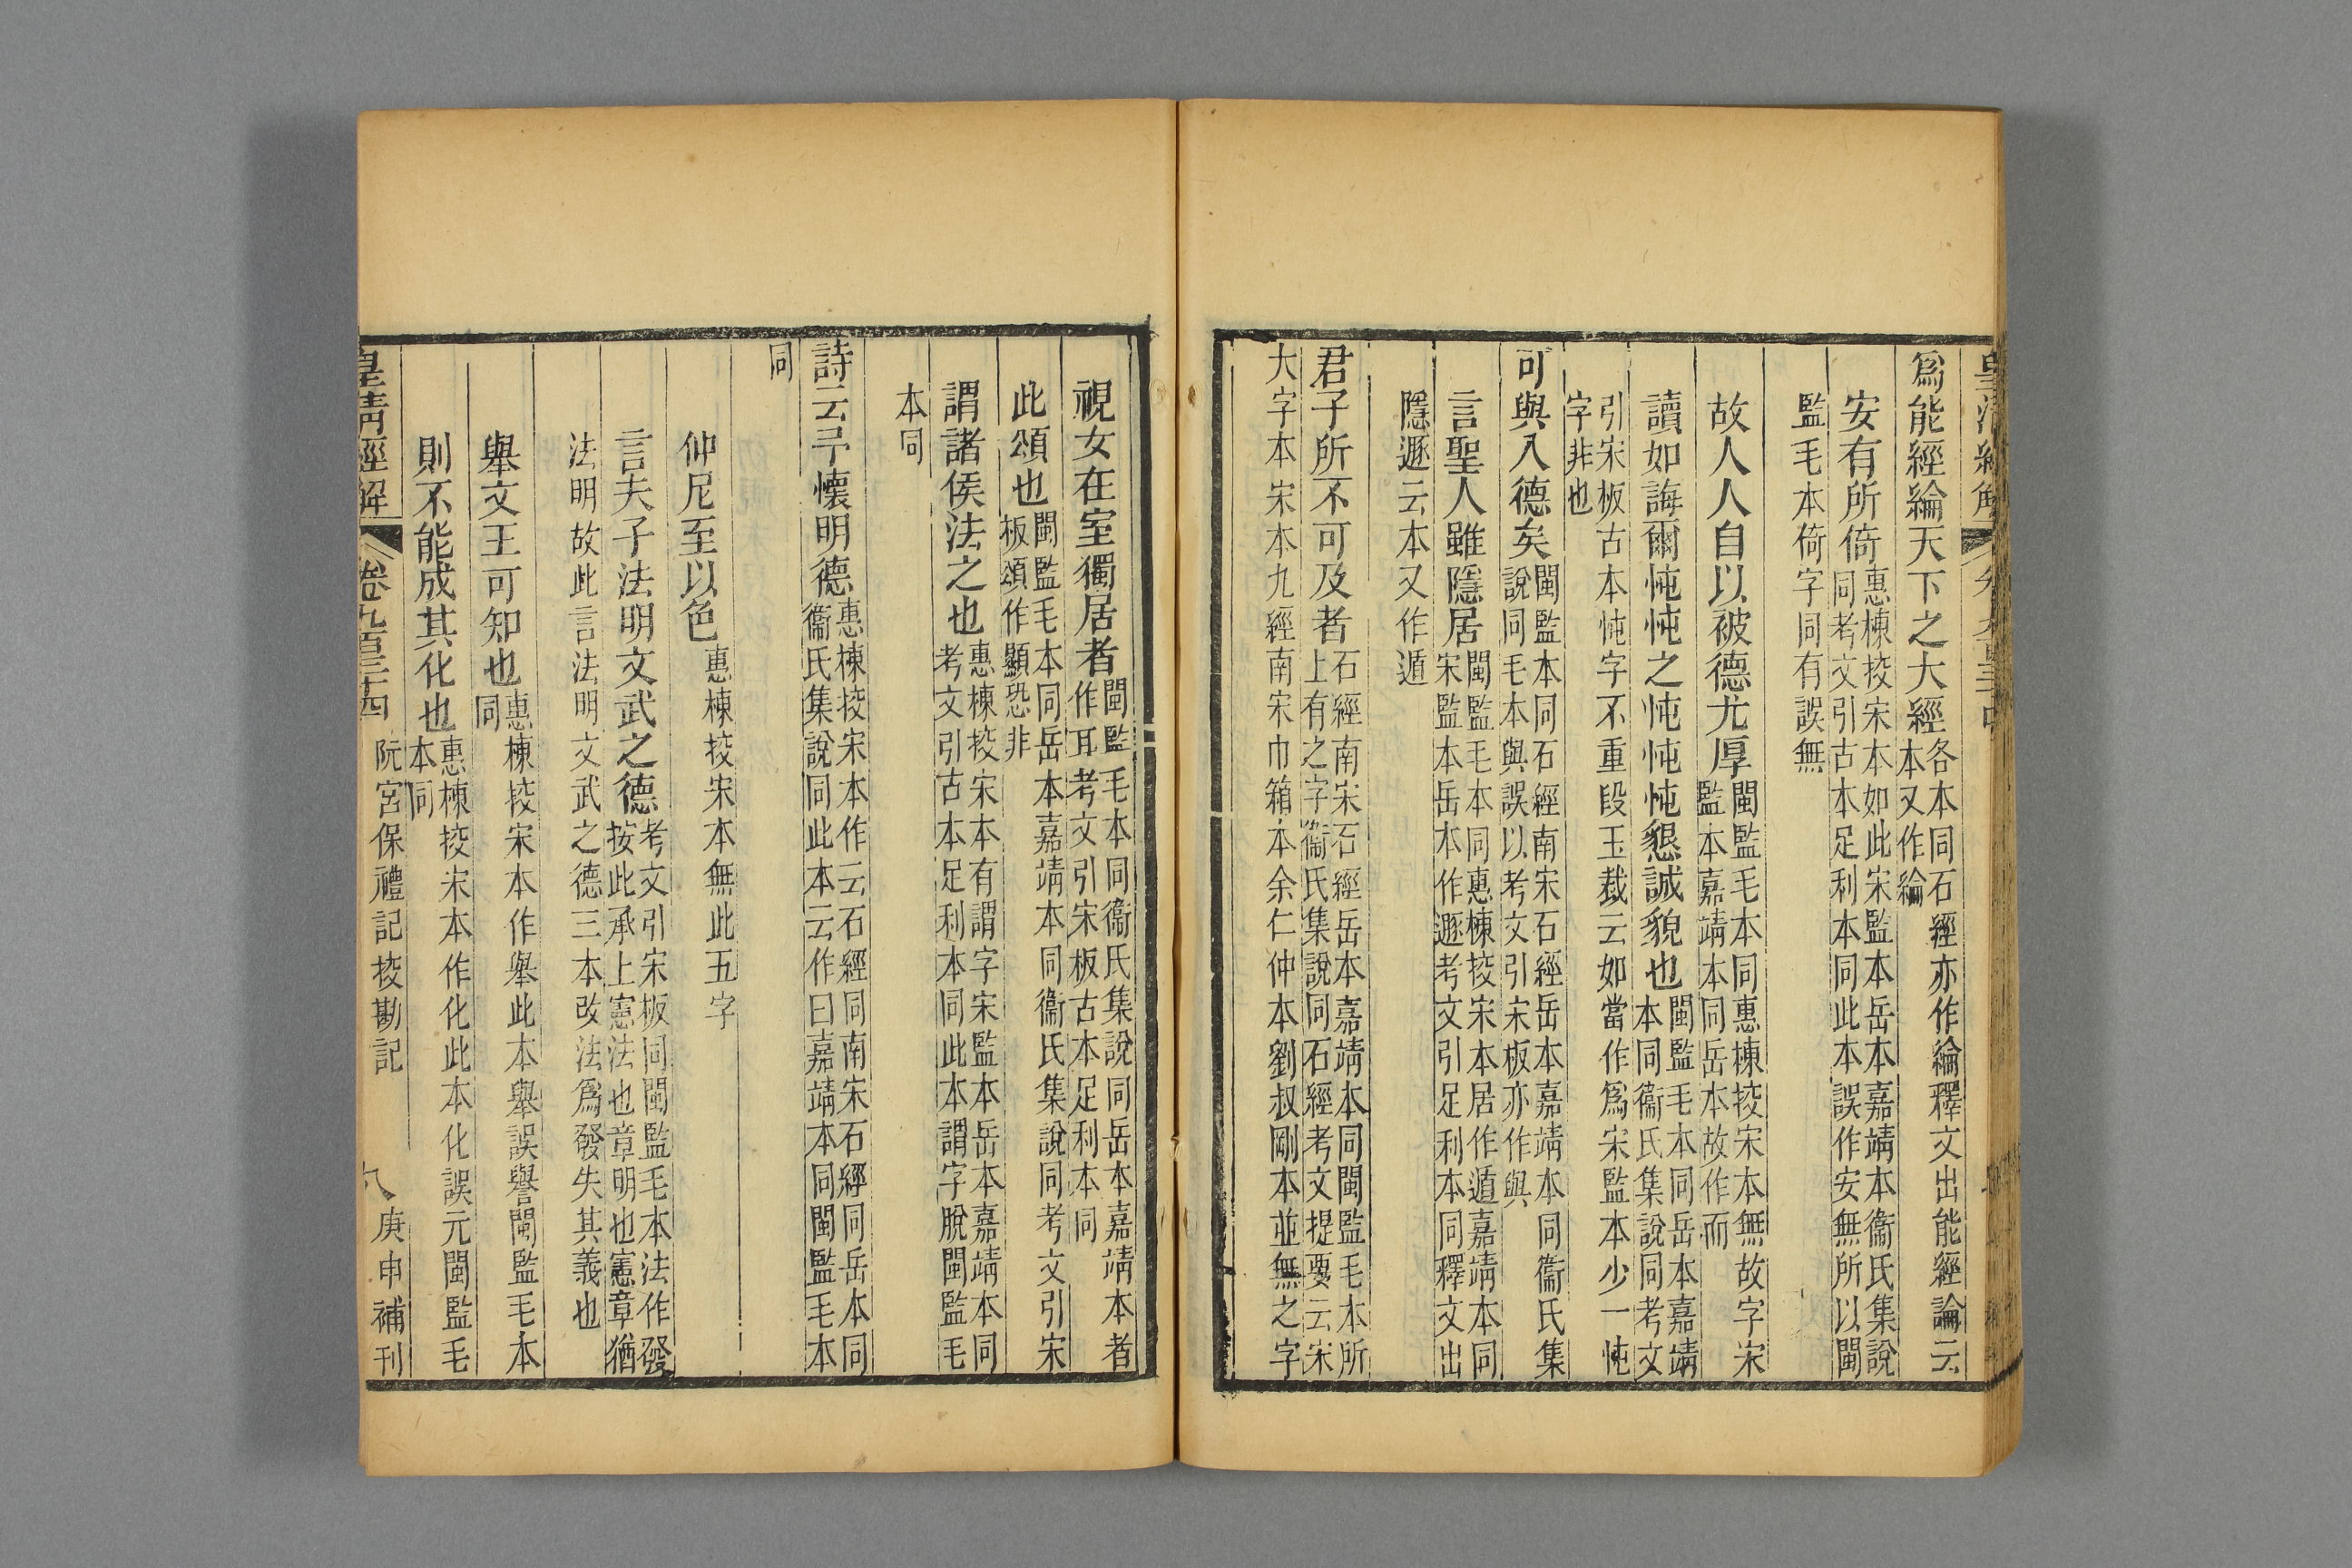 皇清經解
爲能經綸天下之大經各本同石經亦作綸釋文出能經論云
本又作綸
安有所倚惠棟挍宋本如此宋監本岳本嘉靖本衞氏集說
同考文引古本足利本同此本誤作安無所以閩
監毛本倚字同有誤無
故人人自以被德尤厚閩監毛本同惠棟挍宋本無故字宋
監本嘉靖本同岳本故作而
讀如誨爾忳忳之忳忳忳懇誠貌也閩監毛本同岳本嘉靖
本同衞氏集說同考文
引宋板古本忳字不重段玉裁云如當作爲宋監本少一忳
字非也
可與入德矣閩監本同石經南宋石經岳本嘉靖本同衞氏集
說同毛本與誤以考文引宋板亦作與
言聖人雖隱居閩監毛本同惠棟挍宋本居作遁嘉靖本同
宋監本岳本作遯考文引足利本同釋文出
隱遯云本又作遁
君子所不可及者石經南宋石經岳本嘉靖本同閩監毛本所
上有之字衞氏集說同石經考文提要云宋
大字本宋本九經南宋巾箱本余仁仲本劉叔剛本並無之字
視女在室獨居者閩監毛本同衞氏集說同岳本嘉靖本者
作耳考文引宋板古本足利本同
此頌也閩監毛本同岳本嘉靖本同衞氏集說同考文引宋
板頌作顯恐非
謂諸侯法之也惠棟挍宋本有謂字宋監本岳本嘉靖本同
考文引古本足利本同此本謂字脫閩監毛
本同
詩云予懷明德惠棟挍宋本作云石經同南宋石經同岳本同
衞氏集說同此本云作曰嘉靖本同閩監毛本
同
仲尼至以色惠棟挍宋本無此五字
言夫子法明文武之德考文引宋板同閩監毛本法作發
按此承上憲法也章明也憲章猶
法明故此言法明文武之德三本改法爲發失其義也
舉文王可知也惠棟挍宋本作舉此本舉誤譽閩監毛本
同
則不能成其化也惠棟挍宋本作化此本化誤元閩監毛
本同
皇清經解 卷九百三十四 阮宮保禮記挍勘記 八 庚申補刊